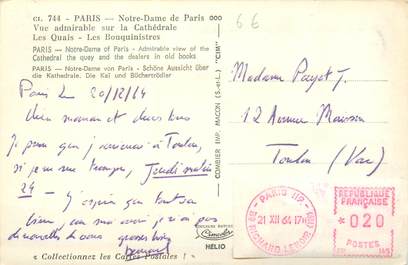 CI. 744 - PARIS — Notre-Dame de Paris
Vue admirable sur la Cathédrale
Les Quais - Les Bouquinistes
PARIS — Notre-Dame of Paris - Admirable view of the
Cathedral the quay and the dealers in old books
PARIS — Notre-Dame von Paris - Schöne Aussicht über
die Kathedrale. Die Kai und Büchertrödler
Paris le 20/12/64
Chère maman et chers tous
Je pense que j'arriverai à Toulon,
si je ne me trompe, Jeudi matin
24 - J'espère que tout va
bien, car moi aussi je n'ai pas
de nouvelles de vous grosses bises
« Collectionnez les Cartes Postales ! »
COMBIER IMP. MACON (S.-et-L.) "CIM"
HÉLIO
6€
Madame Payet J.
12 Avenue
Toulon (Var)
PARIS 11P
21 XII 64 17H
BD RICHARD LENOIR (11e)
RÉPUBLIQUE
FRANÇAISE
020
POSTES